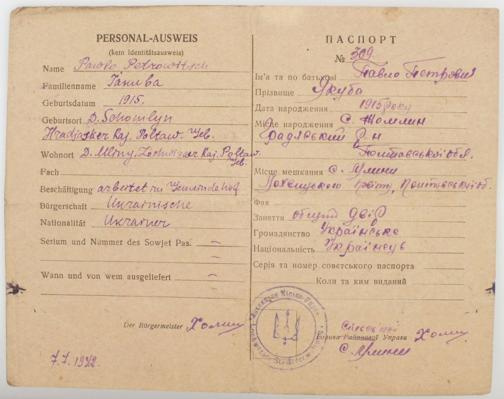 PERSONAL-AUSWEIS
(kein Identitätsausweis)
Name Pawlo Petrowitsch
Familienname
Geburtsdatum 1915.
Geburtsort D.
Raj. Poltaw.
Wohnort D. Raj. Poltaw.
Fach
Beschäftigung arbeitet im Gemeindehof
Bürgerschaft Ukrainische
Nationalität Ukrainer
Serium und Nummer des Sowjet Pas. —
Wann und von wem ausgeliefert —
Der Bürgermeister
7.I.1942
ПАСПОРТ
№ 309
Ім'я та по батькові Павло Петрович
Прізвище Якуба
Дата народження 1915 року
Місце народження с.
Р-н
Полтавської обл.
Місце мешкання с. Млини
Полтавської об.
Фах
Заняття общий двір
Громадянство Українське
Національність Українець
Серія та номер совєтського паспорта
Коли та ким виданий
Районової Управи
с. Млини